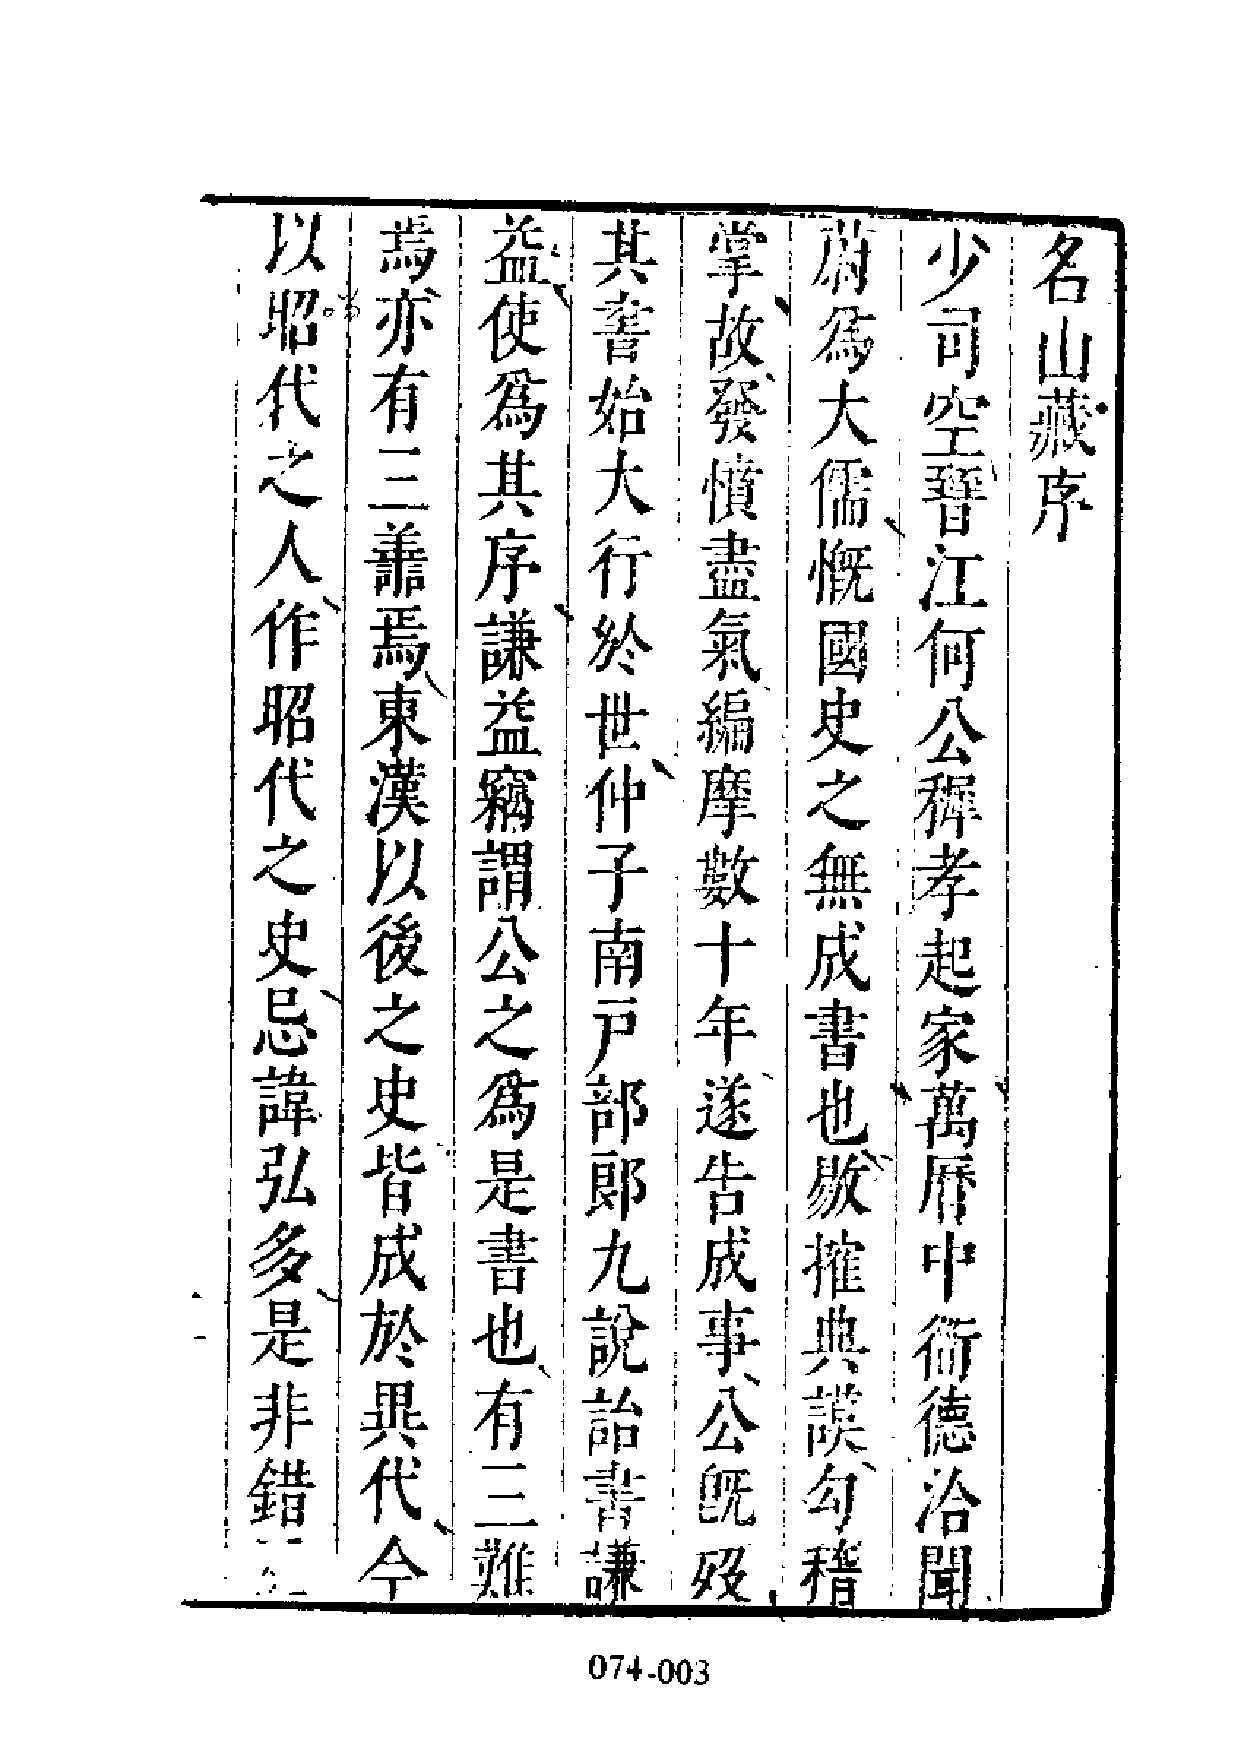 名山藏序
少司空晉江何公穉孝起家萬曆中衞德洽聞
蔚爲大儒慨國史之無成書也敭搉典謨勾稽
掌故發憤盡氣編摩數十年遂告成事公旣歿
其書始大行於世仲子南戸部郎九說詒書謙
益使爲其序謙益竊謂公之爲是書也有三難
焉亦有三善焉東漢以後之史皆成於異代今
以昭代之人作昭代之史忌諱弘多是非錯
074-003